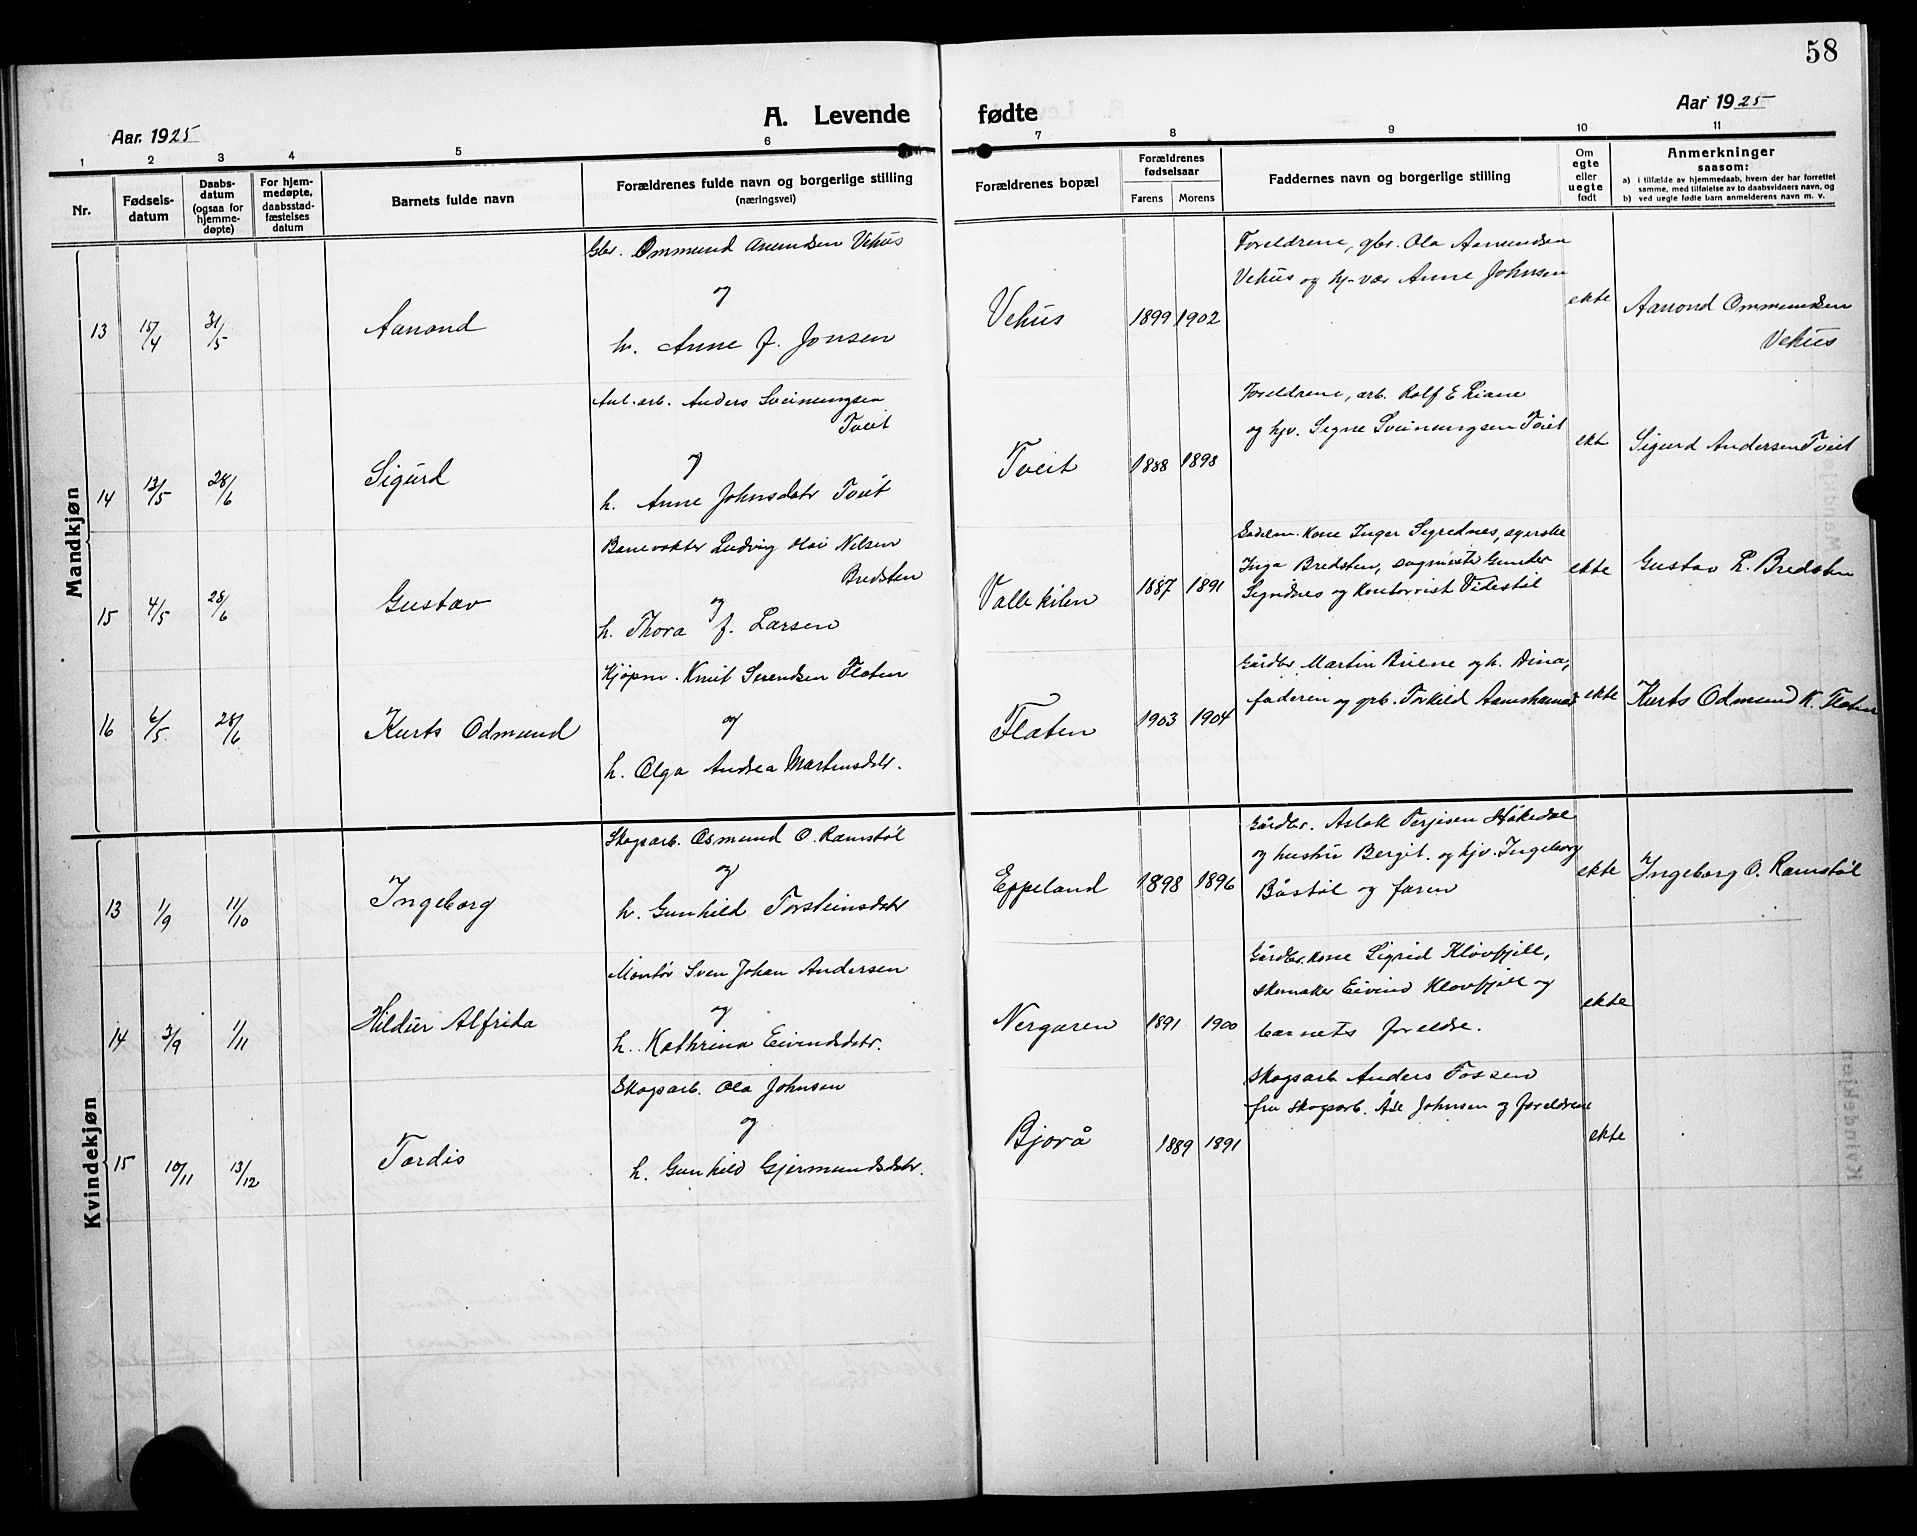 58
Aar. 1925
A. Levende fødte
Aar 1925
1 2 3 4 5 6 7 8 9 10 11
Nr.
Fødsels-
datum
Daabs-
datum
(ogsaa for
hjemme-
døpte)
For hjem-
medøpte,
daabsstad-
fæstelses
datum
Barnets fulde navn
Forældrenes fulde navn og borgerlige stilling
(næringsvei)
Forældrenes bopæl
Forældrenes
fødselsaar
Farens Morens
Faddernes navn og borgerlige stilling
Om
egte
eller
uegte
født
Anmerkninger
saasom:
a) i tilfælde av hjemmedaab, hvem der har forrettet
samme, med tilføielse av to daabsvidners navn, og
b) ved uegte fødte barn anmelderens navn m. v.
Mandkjøn
13 15/4 31/5 Aanond
Gbr. Ommund Anundsen Vehus
og
h. Anne J. Jonsen
Vehus 1899 1902
Foreldrene, gbr. Ola Aanundsen
Vehus og hj-vær Anne Johnsen
ekte
Aanond Ommundsen
Vehus
14 13/5 28/6 Sigurd
Anl. arb. Anders Sveinungsen
Tveit
og
h. Anne Johnsdatr Tveit
Tveit 1888 1898
Foreldrene, arb. Rolf E Liane
og hjv. Signe Sveinungsen Tveit
ekte
Sigurd Andersen Tveit
15 4/5 28/6 Gustav
Banevokter Ludvig Olai Nilsen
Bredsten
og
h. Thora f. Larsen
Vallekilen 1887 1891
Kone Inger Sigridnes, syerske
Inga Bredsten, Gunder
Sigridnes og Kontorist Videstøl
ekte
Gustav L. Bredsten
16 6/5 28/6 Kurts Odmund
Kjøpm. Knut Flaten
og
h. Olga Andrea Martensdtr.
Flaten 1903 1904
Gårdbr Martin Buene og h. Dina,
faderen og grb. Torkild
ekte
Kurts Odmund K. Flaten
Kvindekjøn
13 1/9 11/10 Ingeborg
Skogsarb. Osmund O. Ramstøl
og
h. Gunhild Torsteinsdtr
Eppeland 1898 1896
Gårdbr. Aslak Terjesen Håkedal
og hustru Bergit. og hjv. Ingeborg
Båstøl og faren
ekte
Ingeborg O. Ramstøl
14 3/9 1/11 Hildur Alfrida
Montør Sven Johan Andersen
og
h. Kathrina Eivindsdtr.
Nergaren 1891 1900
Gårdbr. kone Sigrid Klovfjell,
skomaker Eivind Klovfjell og
barnets foreldre.
ekte
15 10/11 13/12 Tordis
Skogsarb. Ola Johnsen
og
h. Gunhild Gjermundsdtr.
Bjorå 1889 1891
Skogsarb Anders Fossen
fru skogsarb. Åse Johnsen og foreldrene
ekte